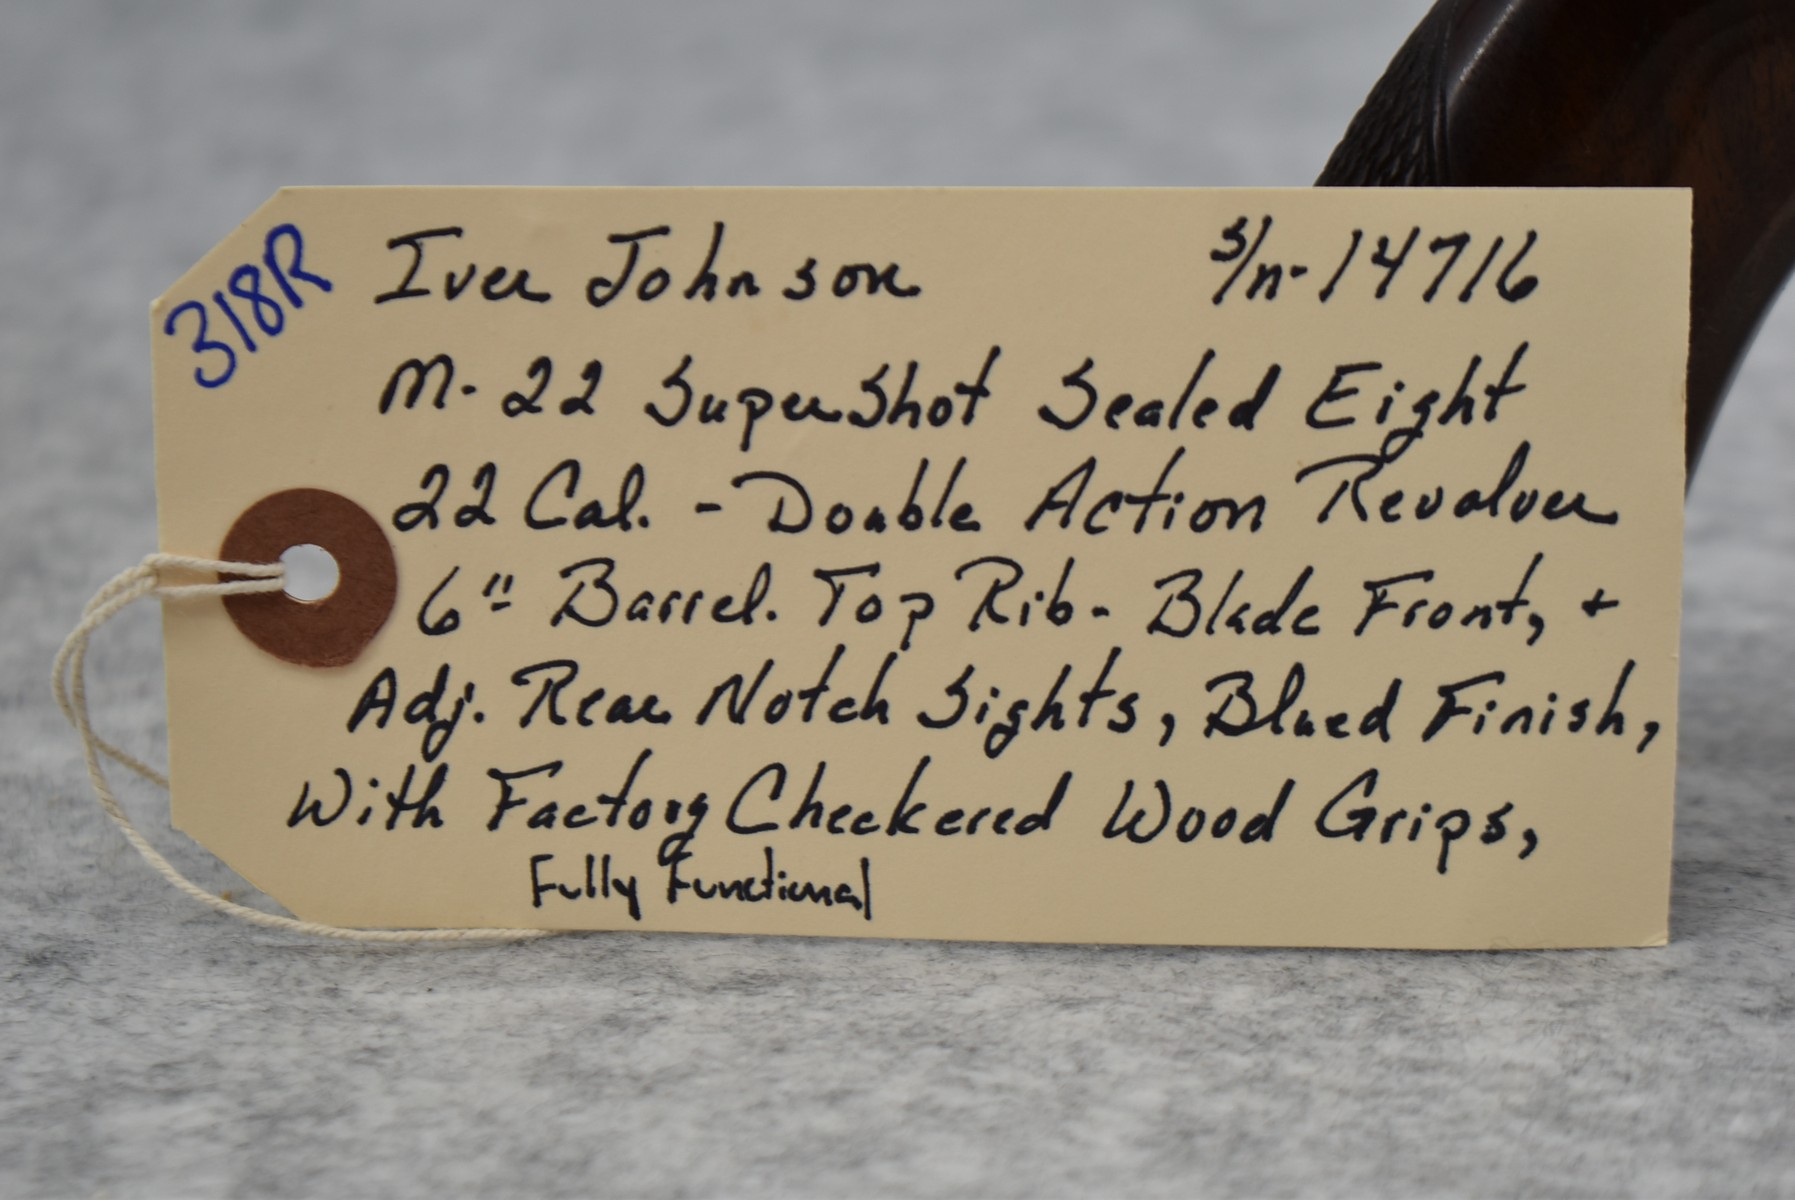 318R
Iver Johnson s/n-14716
M-22 SuperShot Sealed Eight
22 Cal. - Double Action Revolver
6" Barrel. Top Rib - Blade Front, +
Adj. Rear Notch Sights, Blued Finish,
With Factory Checkered Wood Grips,
Fully Functional